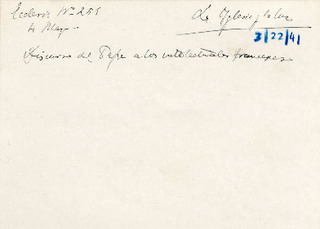 Ecclesia Nº 251
La Iglesia y la luz
3/22/41
Discurso del Papa a los intelectuales franceses